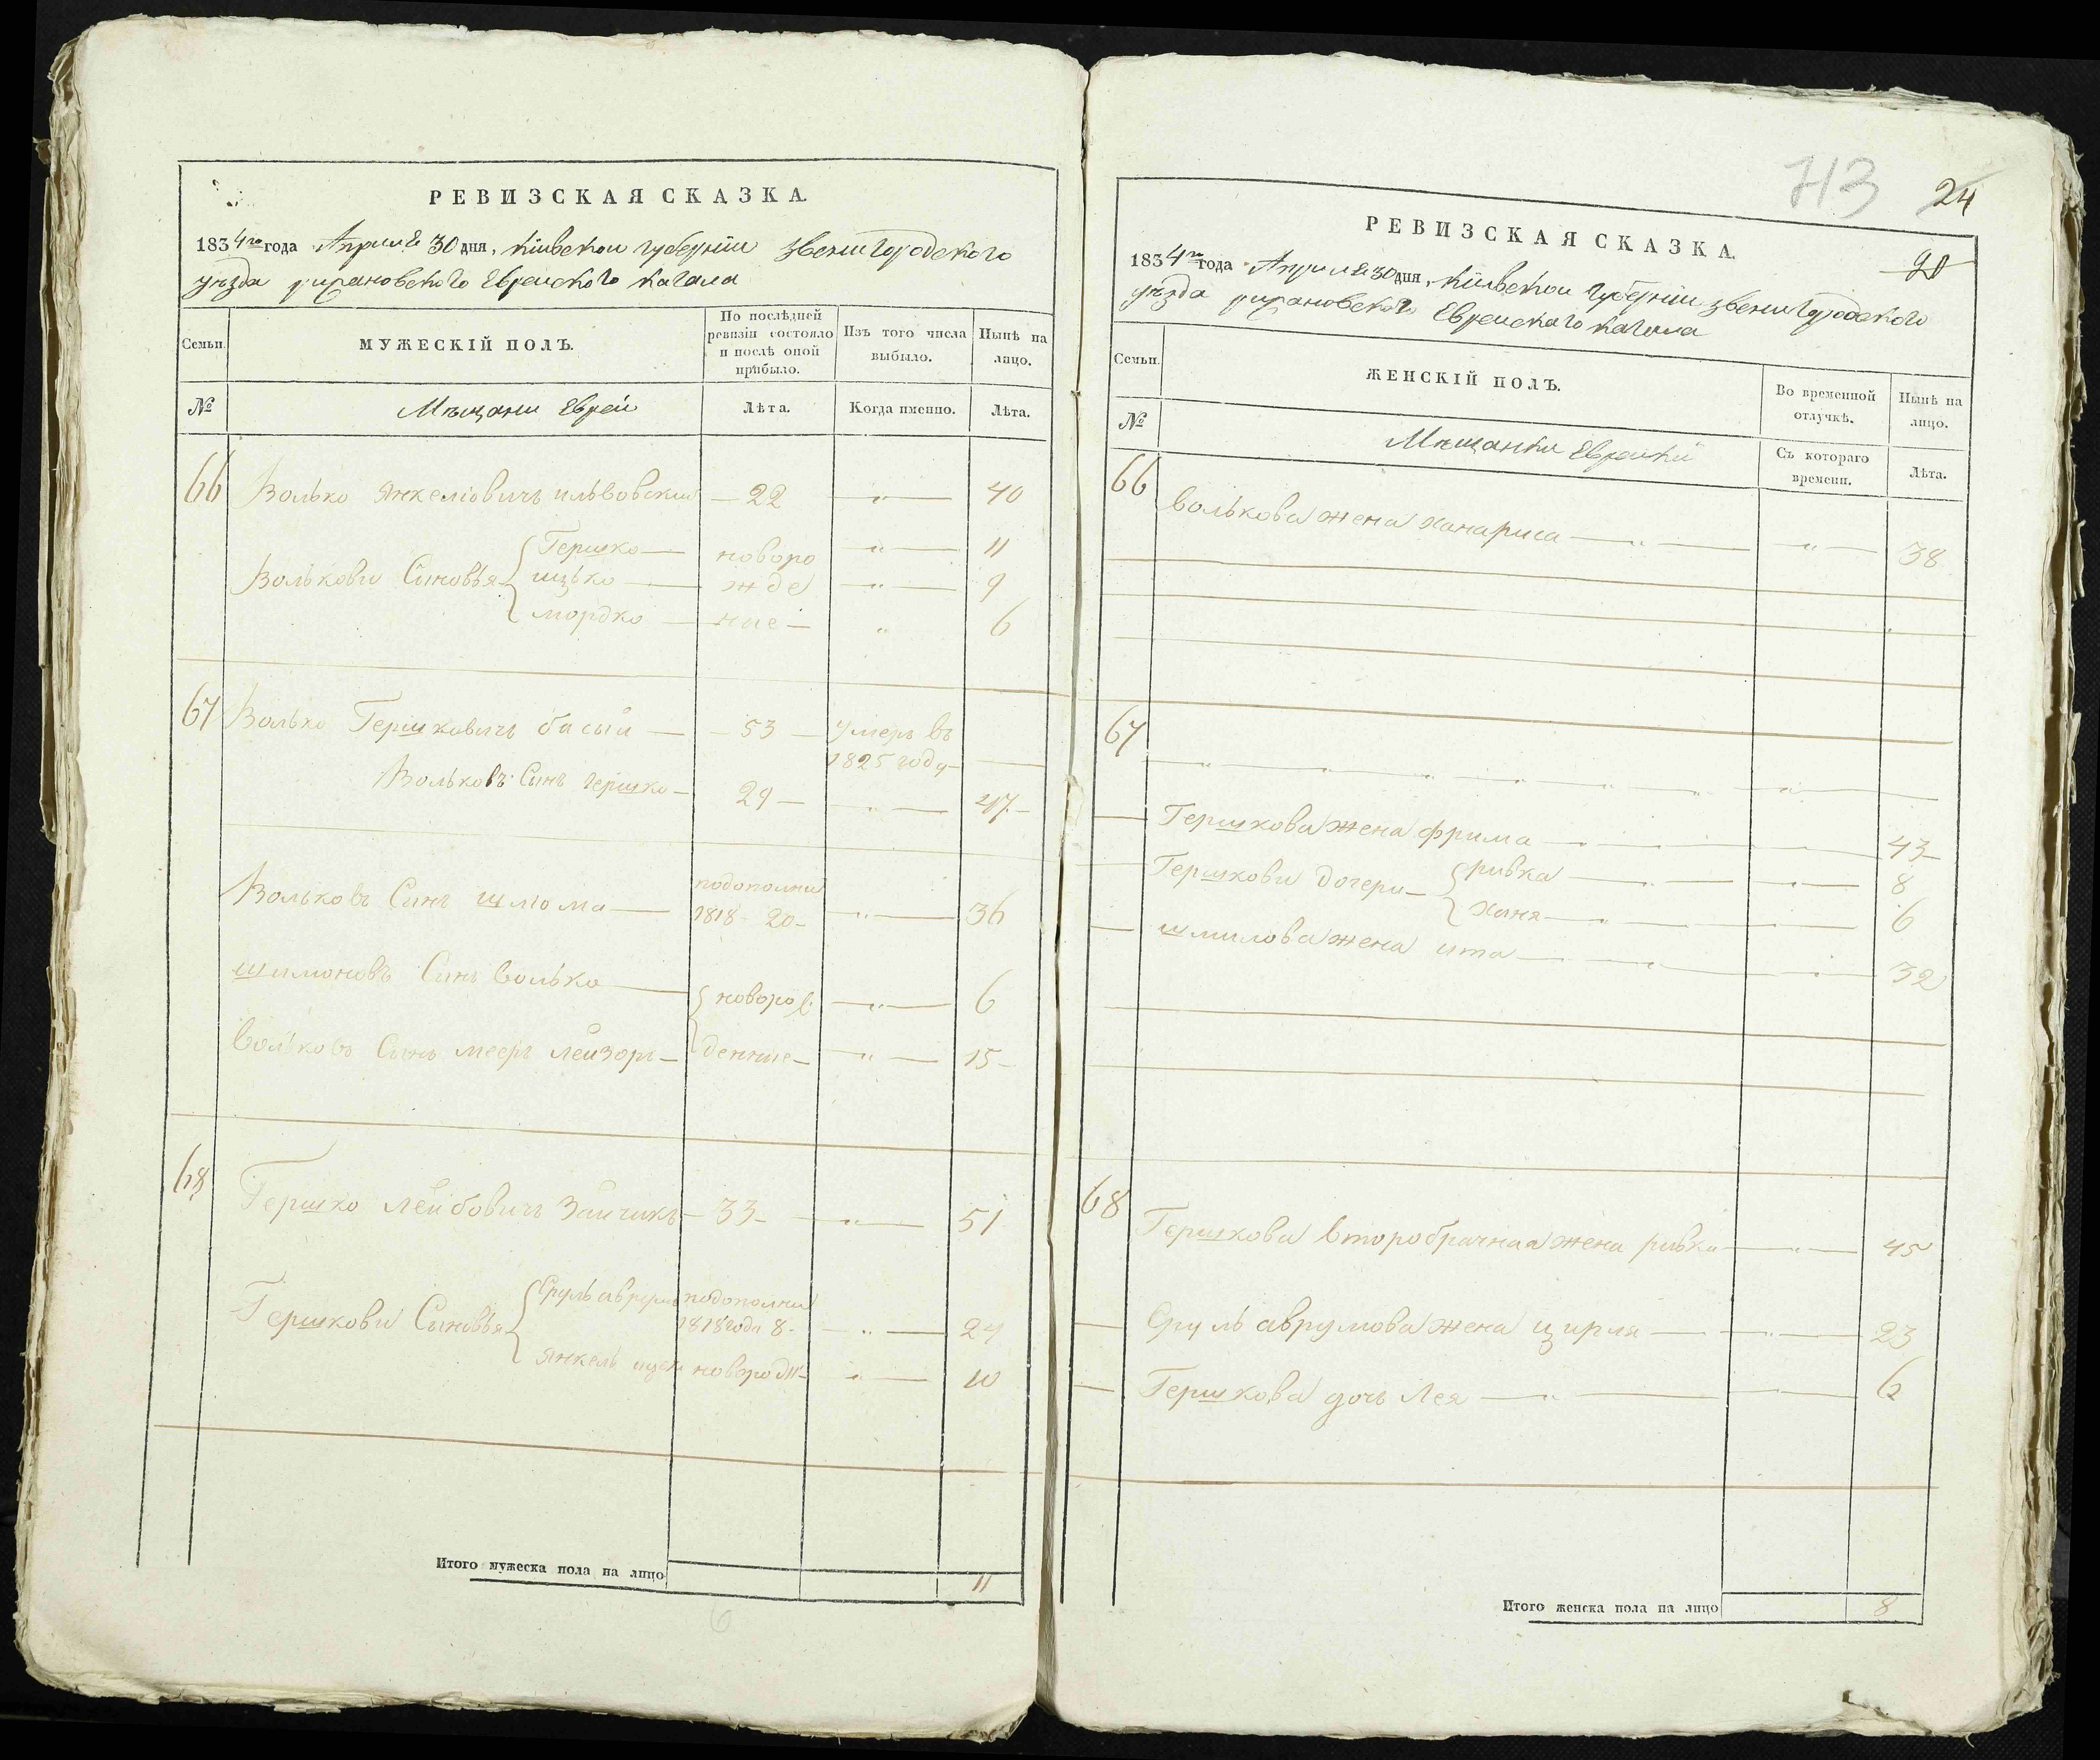 РЕВИЗСКАЯ СКАЗКА.
1834го года Апреля 30 дня, Кіевской губерніи Звенигородского
уезда рижановского Еврейского кагала
Семьи.
МУЖЕСКІЙ ПОЛЪ.
По послѣдней ревизіи состояло и послѣ оной прибыло.
Изъ того числа выбыло.
Нынѣ на лицо.
№
Мещани Евреи
Лѣта.
Когда именно.
Лѣта.
66 Волько Янкелiовичъ ильвовский — 22 — „ — 40
Волькови Сыновья { Гершко — новоро „ — 11
ицько — жде „ — 9
мордко — ные — „ 6
67 Волько Гершковичъ басый — 53 — умеръ въ
1825 году —
Вольковъ Синъ гершко — 29 — „ — 47 —
Вольковъ Синъ шлiома — подополни
1818 20 — „ — 36
шлiомовъ Синъ волько — { новорож „ — 6
вольковъ Синъ меер лейзоръ — денние — „ — 15 —
68 Гершко лейбовичъ Зайчикъ — 33 — „ — 51
Гершкови Сыновья { Сруль аврумъ подополни
1818 года 8 — „ — 24
янкель ицек новорожд — „ — 10
Итого мужеска пола на лицо 11
6
713 24
20
РЕВИЗСКАЯ СКАЗКА.
1834го года Апреля 30 дня, Кіевской губерніи звенигородского
уезда рижановского Еврейского кагала
Семьи.
ЖЕНСКІЙ ПОЛЪ.
Во временной отлучкѣ.
Нынѣ на лицо.
№
Мещанки Еврейки
Съ котораго времени.
Лѣта.
66 Волькова жена ханариса — „ — „ — 38
67 „ „ „ „ „ „ „
— Гершкова жена фрима — 43 —
Гершкови дочери — { ривка — 8
ханя — 6
— шмилова жена ита — 32
68 Гершкова второбрачная жена ривка — „ — 45
— Сруль аврумова жена цирля — 23
— Гершкова дочь Лея — „ — 6
Итого женска пола на лицо 8